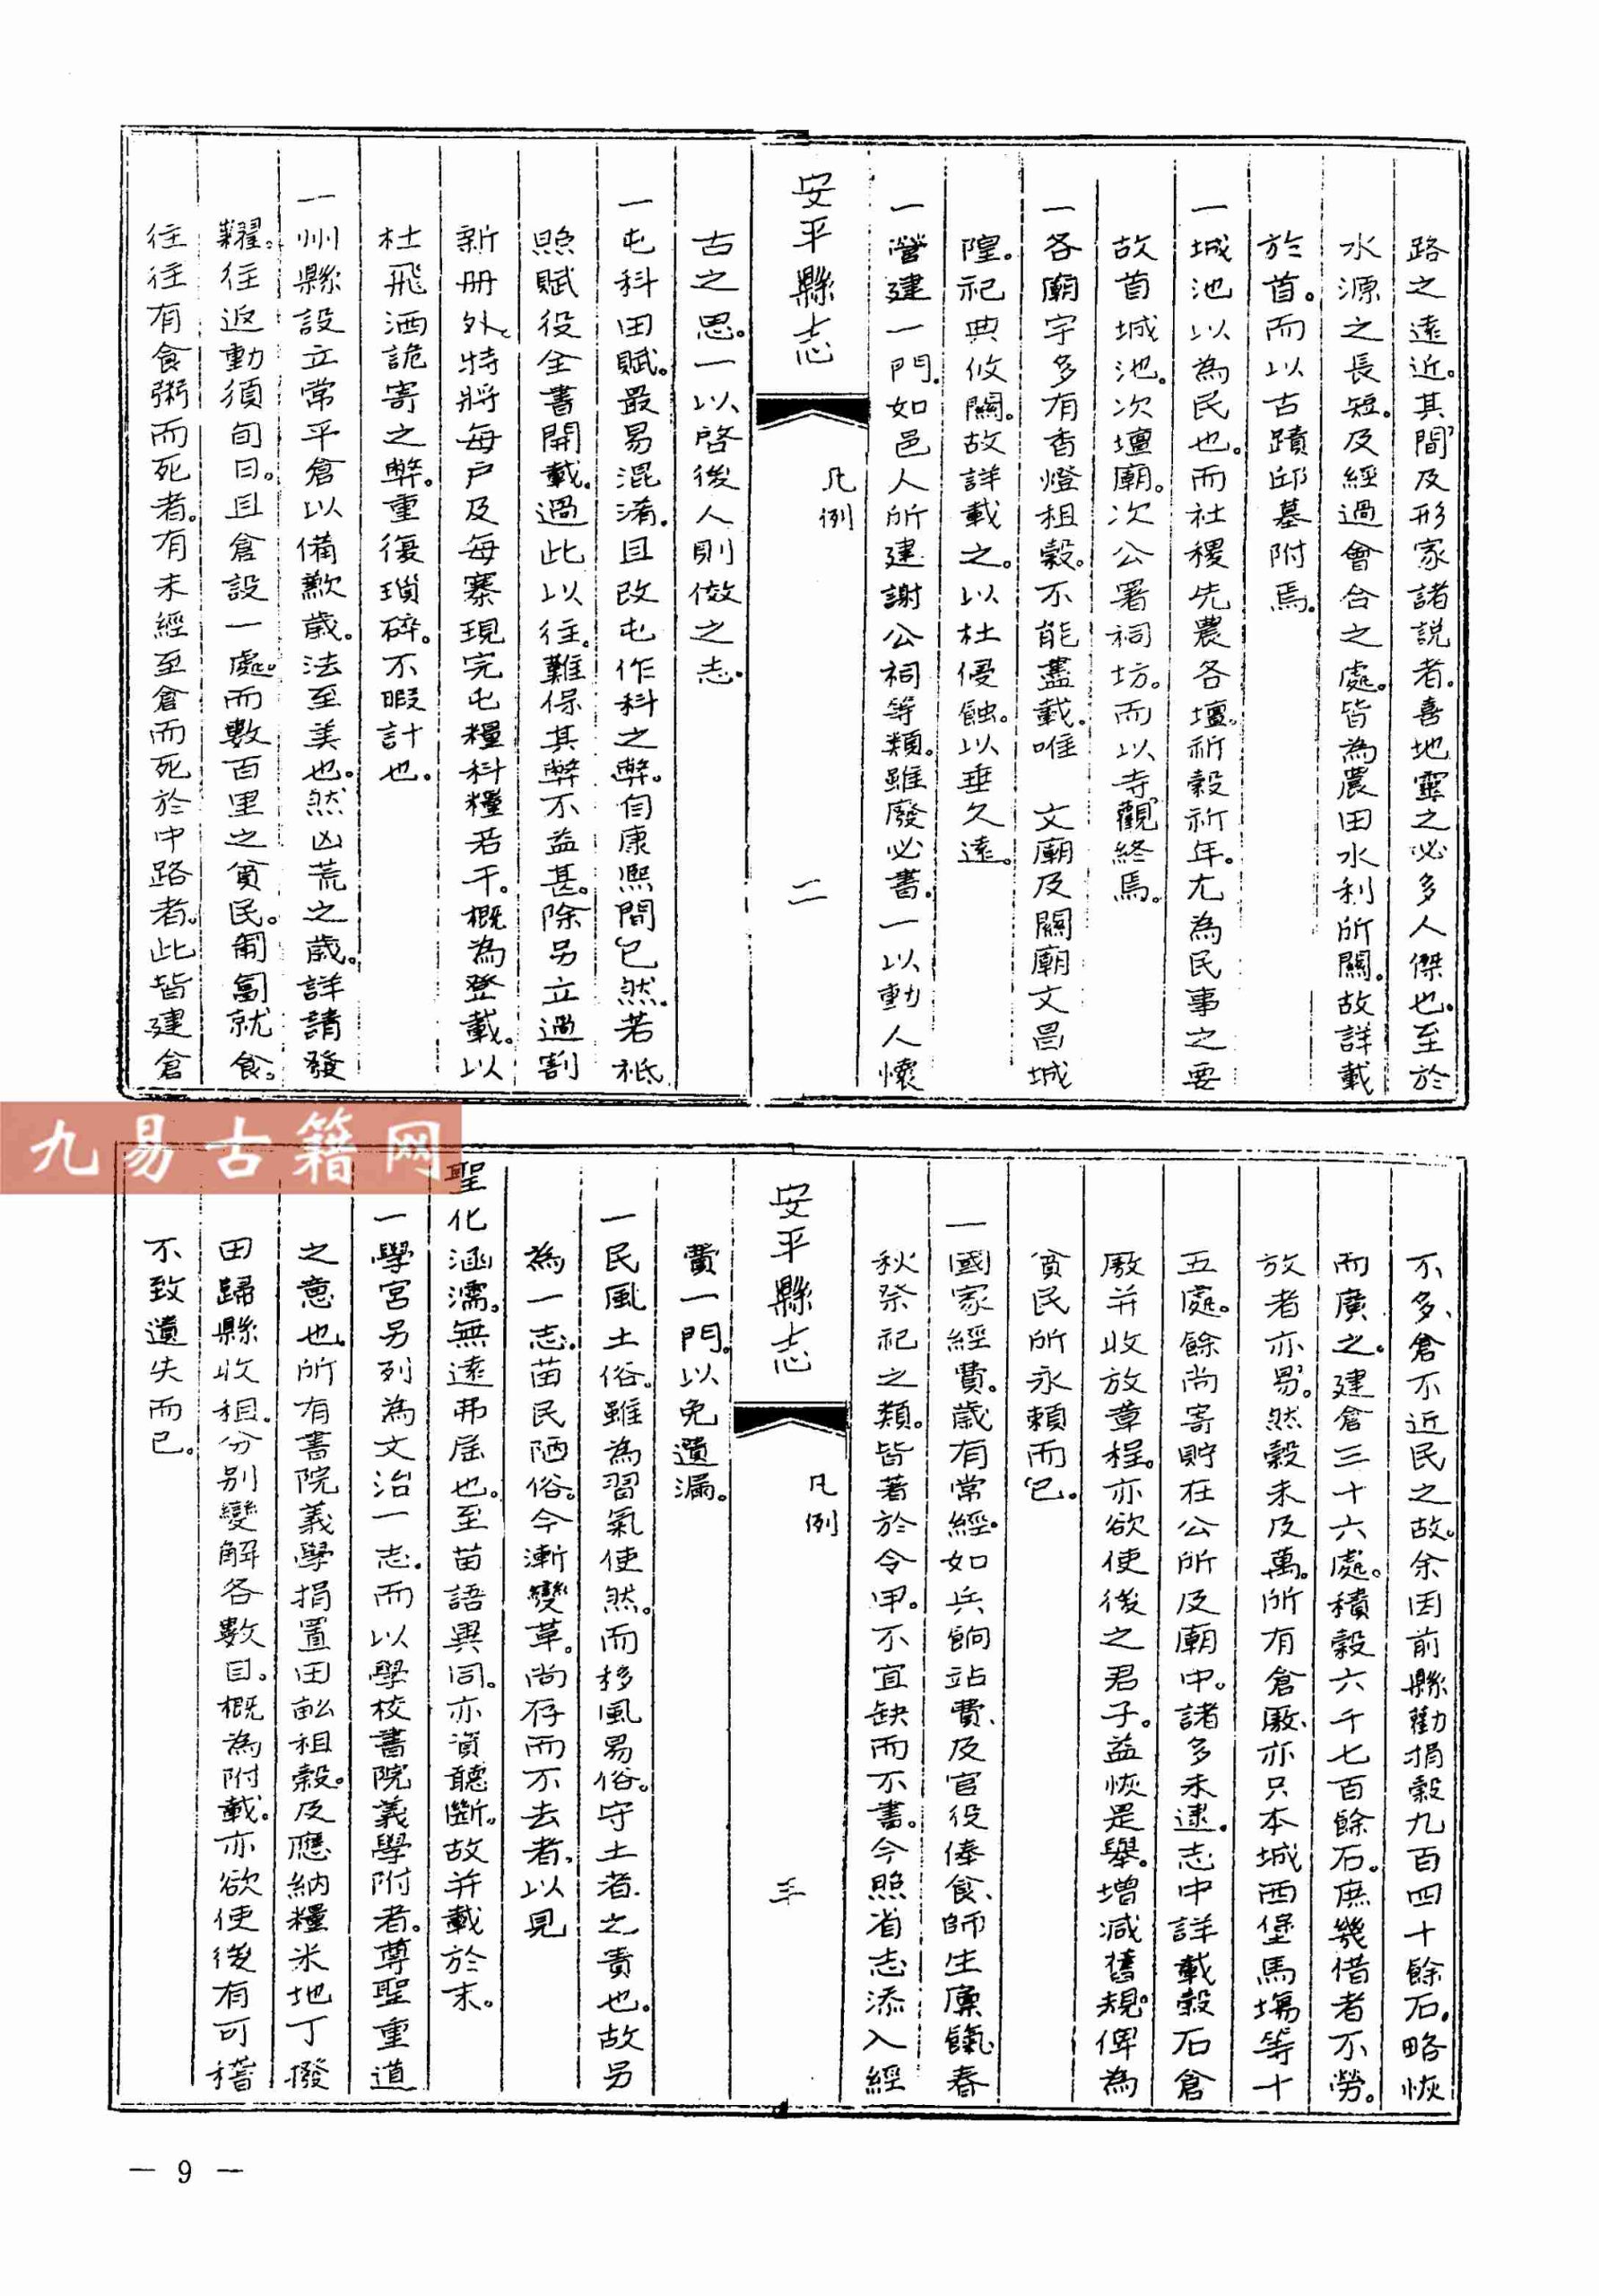 路之遠近。其間及形家諸説者。喜地靈之必多人傑也。至於
水源之長短。及經過會合之處。皆為農田水利所關。故詳載
於首。而以古蹟邱墓附焉。
一城池以為民也。而社稷先農各壇。祈穀祈年。尤為民事之要
故首城池。次壇廟。次公署祠坊。而以寺觀終焉。
一各廟宇多有香燈租穀。不能盡載。唯　文廟及關廟文昌城
隍。祀典攸關。故詳載之。以杜侵蝕。以垂久遠。
一營建一門。如邑人所建謝公祠等類。雖廢必書。一以動人懷
安平縣志
凡例
二
古之思。一以啓後人則傚之志。
一屯科田賦。最易混淆。且改屯作科之弊。自康熙間已然。若祇
照賦役全書開載。過此以往。難保其弊不益甚。除另立過割
新册外。特將每戶及每寨現完屯糧科糧若干。概為登載。以
杜飛洒詭寄之弊。重復瑣碎。不暇計也。
一州縣設立常平倉以備歉歲。法至美也。然凶荒之歲。詳請發
糶。往返動須旬日。且倉設一處。而數百里之貧民。匍匐就食。
往往有食粥而死者。有未經至倉而死於中路者。此皆建倉
不多、倉不近民之故。余因前縣勸捐穀九百四十餘石。略恢
而廣之。建倉三十六處。積穀六千七百餘石。庶幾借者不勞。
放者亦易。然穀未及萬。所有倉廒、亦只本城西堡馬塲等十
五處。餘尚寄貯在公所及廟中。諸多未逮。志中詳載穀石倉
廒并收放章程。亦欲使後之君子。益恢是舉。增減舊規。俾為
貧民所永賴而已。
一國家經費。歲有常經。如兵餉站費、及官役俸食、師生廩餼、春
秋祭祀之類。皆著於令甲。不宜缺而不書。今照省志添入經
安平縣志
凡例
三
費一門。以免遺漏。
一民風土俗。雖為習氣使然。而移風易俗。守土者之責也。故另
為一志。苗民陋俗。今漸變革。尚存而不去者、以見
聖化涵濡。無遠弗屆也。至苗語異同。亦資聽斷。故并載於末。
一學宮另列為文治一志。而以學校書院義學附者。尊聖重道
之意也。所有書院義學捐置田畝租穀。及應納糧米地丁撥
田歸縣收租。分別變解各數目。概為附載。亦欲使後有可稽
不致遺失而已。
九易古籍网
— 9 —